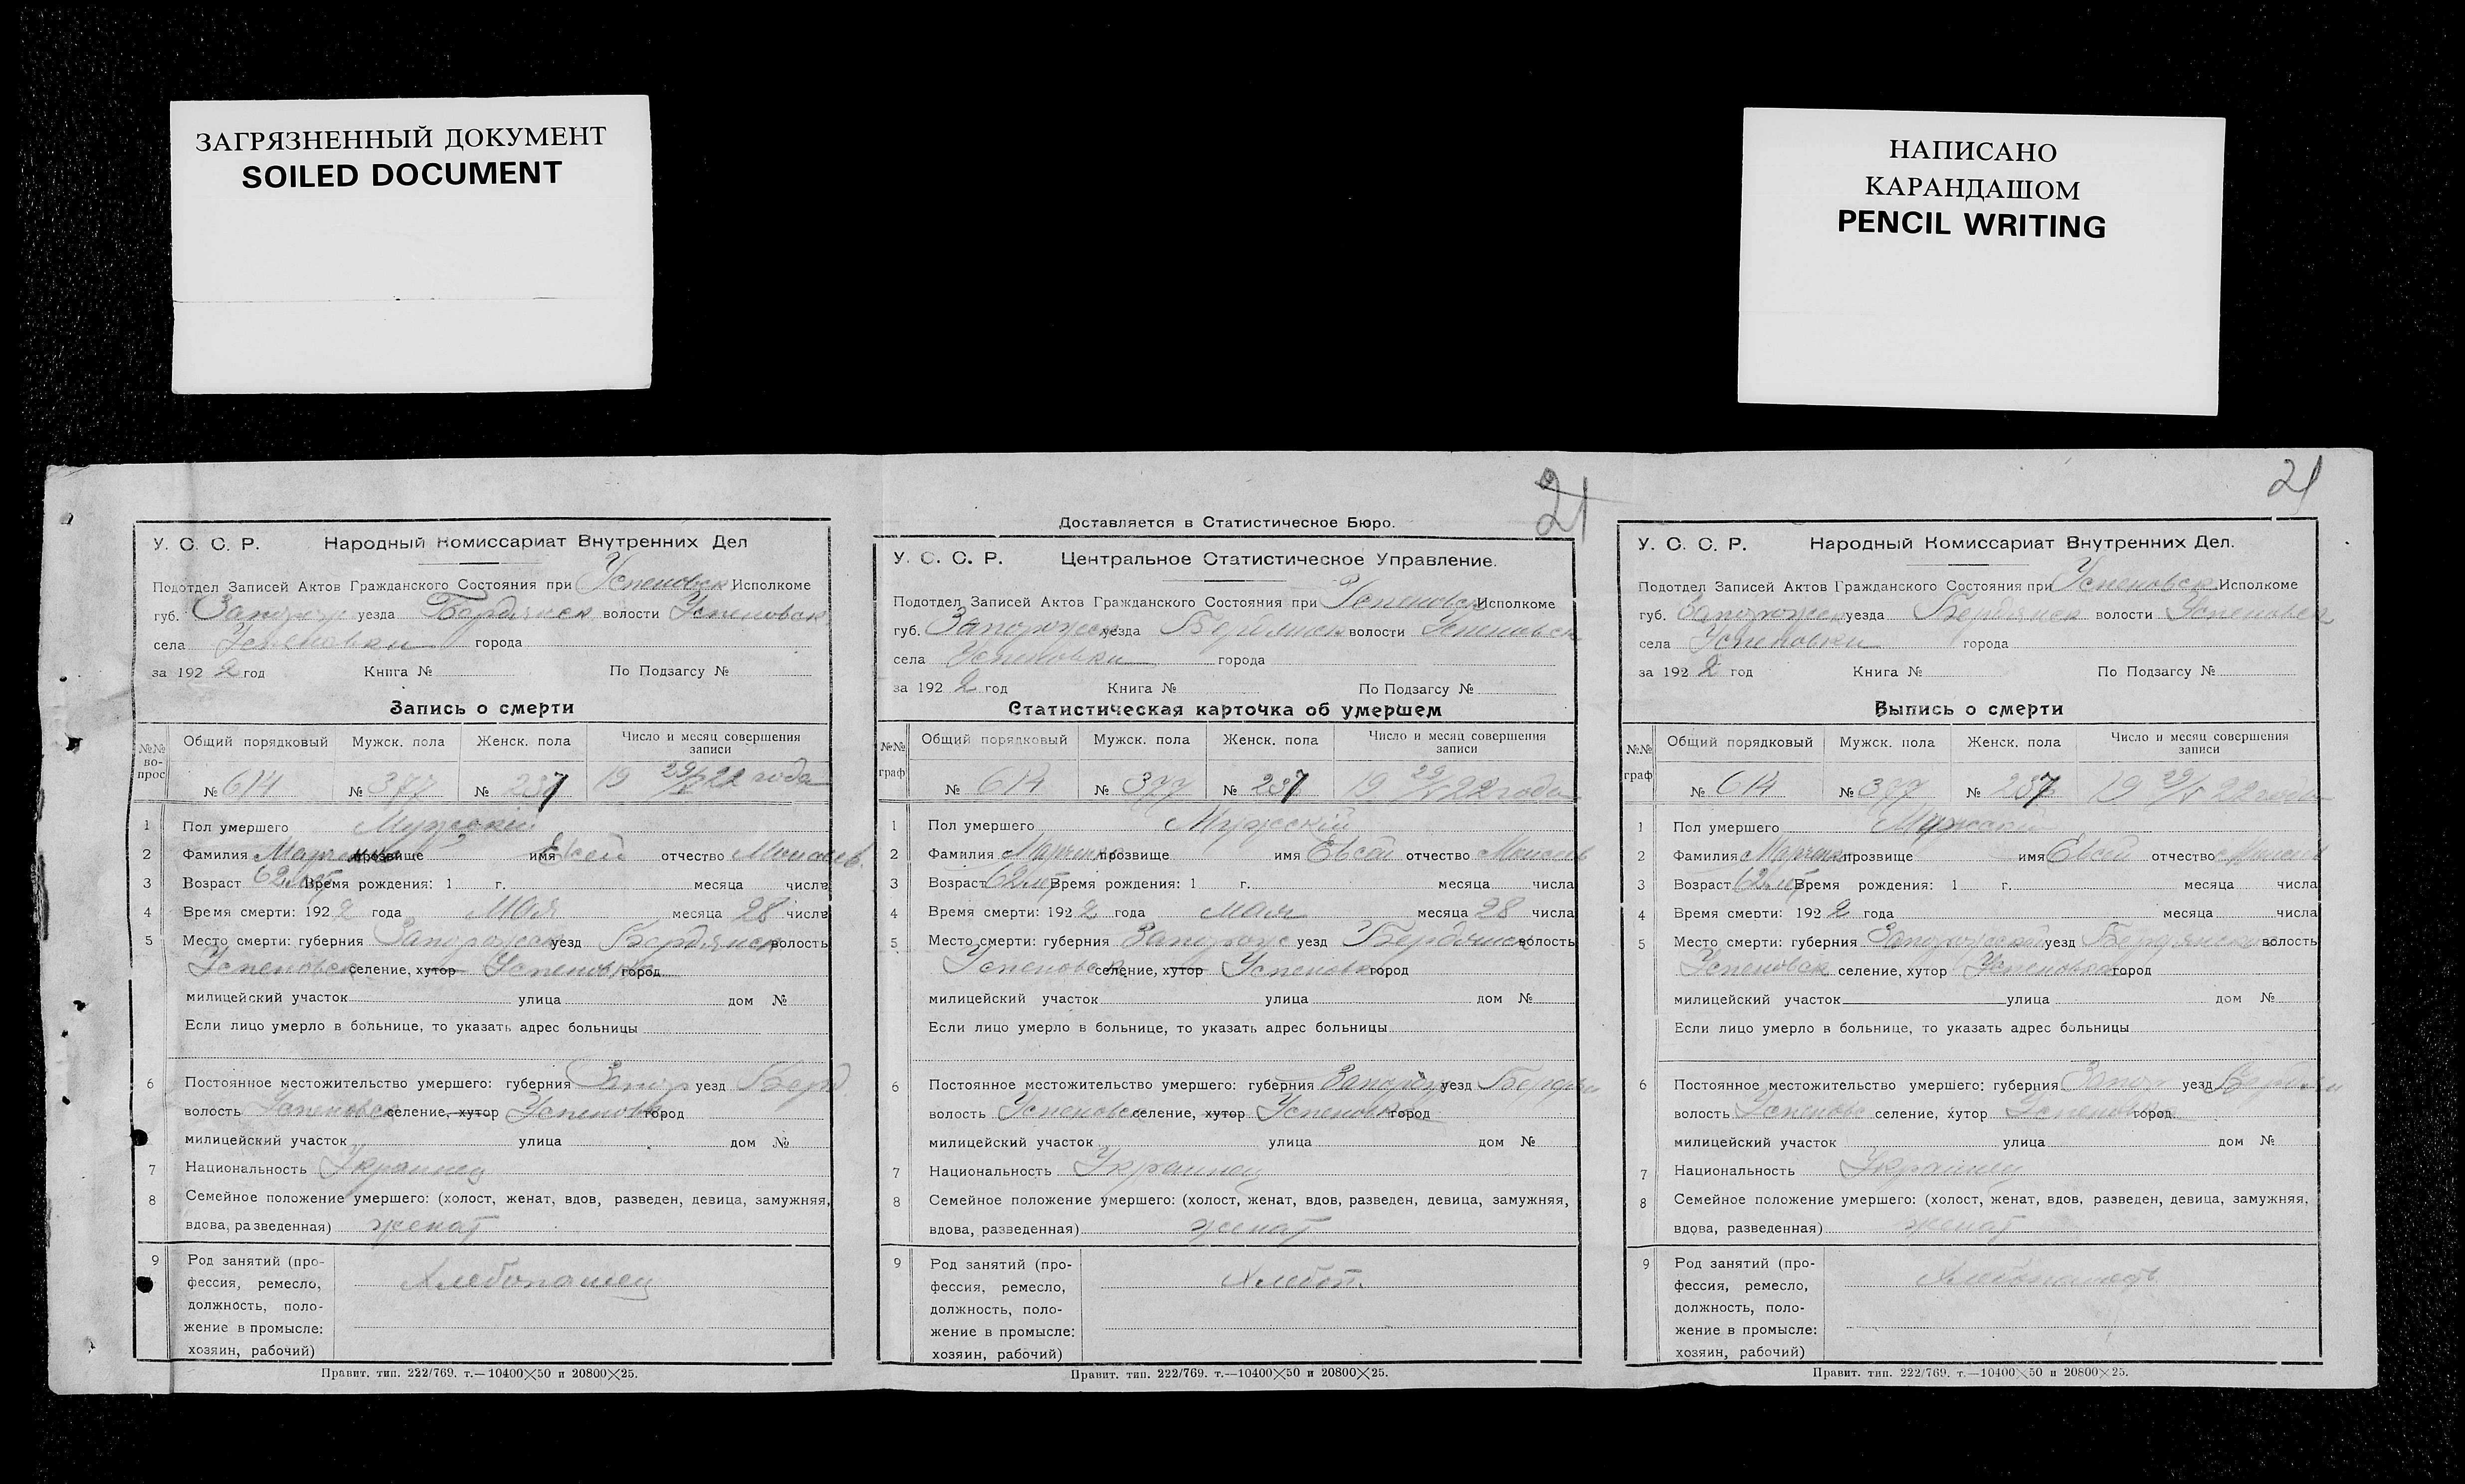 ЗАГРЯЗНЕННЫЙ ДОКУМЕНТ
SOILED DOCUMENT
НАПИСАНО
КАРАНДАШОМ
PENCIL WRITING
21
У. С. С. Р. Народный Комиссариат Внутренних Дел
Подотдел Записей Актов Гражданского Состояния при Успеновск Исполкоме
губ. Запорож уезда Бердянск волости Успеновск
села Успеновки города
за 1922 год Книга № По Подзагсу №
Запись о смерти
№№ вопрос Общий порядковый Мужск. пола Женск. пола Число и месяц совершения записи
№ 614 № 377 № 237 19 29/V 22 года
1 Пол умершего Мужской
2 Фамилия прозвище имя Евсей отчество Моисеев.
3 Возраст 62 лет Время рождения: 1 г. месяца числа
4 Время смерти: 1922 года мая месяца 28 числа
5 Место смерти: губерния Запорожск уезд Бердянск волость
Успеновск селение, хутор Успеновка город
милицейский участок улица дом №
Если лицо умерло в больнице, то указать адрес больницы
6 Постоянное местожительство умершего: губерния Запор уезд Берд
волость Успеновск селение, хутор Успеновка город
милицейский участок улица дом №
7 Национальность Украинец
8 Семейное положение умершего: (холост, женат, вдов, разведен, девица, замужняя,
вдова, разведенная) женат
9 Род занятий (про-
фессия, ремесло,
должность, поло-
жение в промысле:
хозяин, рабочий)
Хлебопашец
Правит. тип. 222/769. т.—10400×50 и 20800×25.
Доставляется в Статистическое Бюро.
21
У. С. С. Р. Центральное Статистическое Управление.
Подотдел Записей Актов Гражданского Состояния при Успеновск Исполкоме
губ. Запорожск уезда Бердянск волости Успеновск
села Успеновки города
за 1922 год Книга № По Подзагсу №
Статистическая карточка об умершем
№№ граф Общий порядковый Мужск. пола Женск. пола Число и месяц совершения записи
№ 614 № 377 № 237 19 29/V 22 года
1 Пол умершего Мужской
2 Фамилия прозвище имя Евсей отчество Моисеев
3 Возраст 62 лет Время рождения: 1 г. месяца числа
4 Время смерти: 1922 года мая месяца 28 числа
5 Место смерти: губерния Запорож уезд Бердянск волость
Успеновск селение, хутор Успеновка город
милицейский участок улица дом №
Если лицо умерло в больнице, то указать адрес больницы
6 Постоянное местожительство умершего: губерния Запорож уезд Бердян
волость Успеновск селение, хутор Успеновка город
милицейский участок улица дом №
7 Национальность Украинец
8 Семейное положение умершего: (холост, женат, вдов, разведен, девица, замужняя,
вдова, разведенная) женат
9 Род занятий (про-
фессия, ремесло,
должность, поло-
жение в промысле:
хозяин, рабочий)
Хлебоп.
Правит. тип. 222/769. т.—10400×50 и 20800×25.
У. С. С. Р. Народный Комиссариат Внутренних Дел.
Подотдел Записей Актов Гражданского Состояния при Успеновск Исполкоме
губ. Запорожск уезда Бердянск волости Успеновск
села Успеновки города
за 1922 год Книга № По Подзагсу №
Выпись о смерти
№№ граф Общий порядковый Мужск. пола Женск. пола Число и месяц совершения записи
№ 614 № 377 № 237 19 29/V 22 года
1 Пол умершего Мужской
2 Фамилия прозвище имя Евсей отчество Моисеев
3 Возраст 62 лет Время рождения: 1 г. месяца числа
4 Время смерти: 1922 года месяца числа
5 Место смерти: губерния Запорожской уезд Бердянск волость
Успеновск селение, хутор Успеновка город
милицейский участок улица дом №
Если лицо умерло в больнице, то указать адрес больницы
6 Постоянное местожительство умершего: губерния Запор уезд Бердян
волость Успеновс селение, хутор Успеновка город
милицейский участок улица дом №
7 Национальность Украинец
8 Семейное положение умершего: (холост, женат, вдов, разведен, девица, замужняя,
вдова, разведенная) женат
9 Род занятий (про-
фессия, ремесло,
должность, поло-
жение в промысле:
хозяин, рабочий)
Хлебопашець
Правит. тип. 222/769. т.—10400×50 и 20800×25.